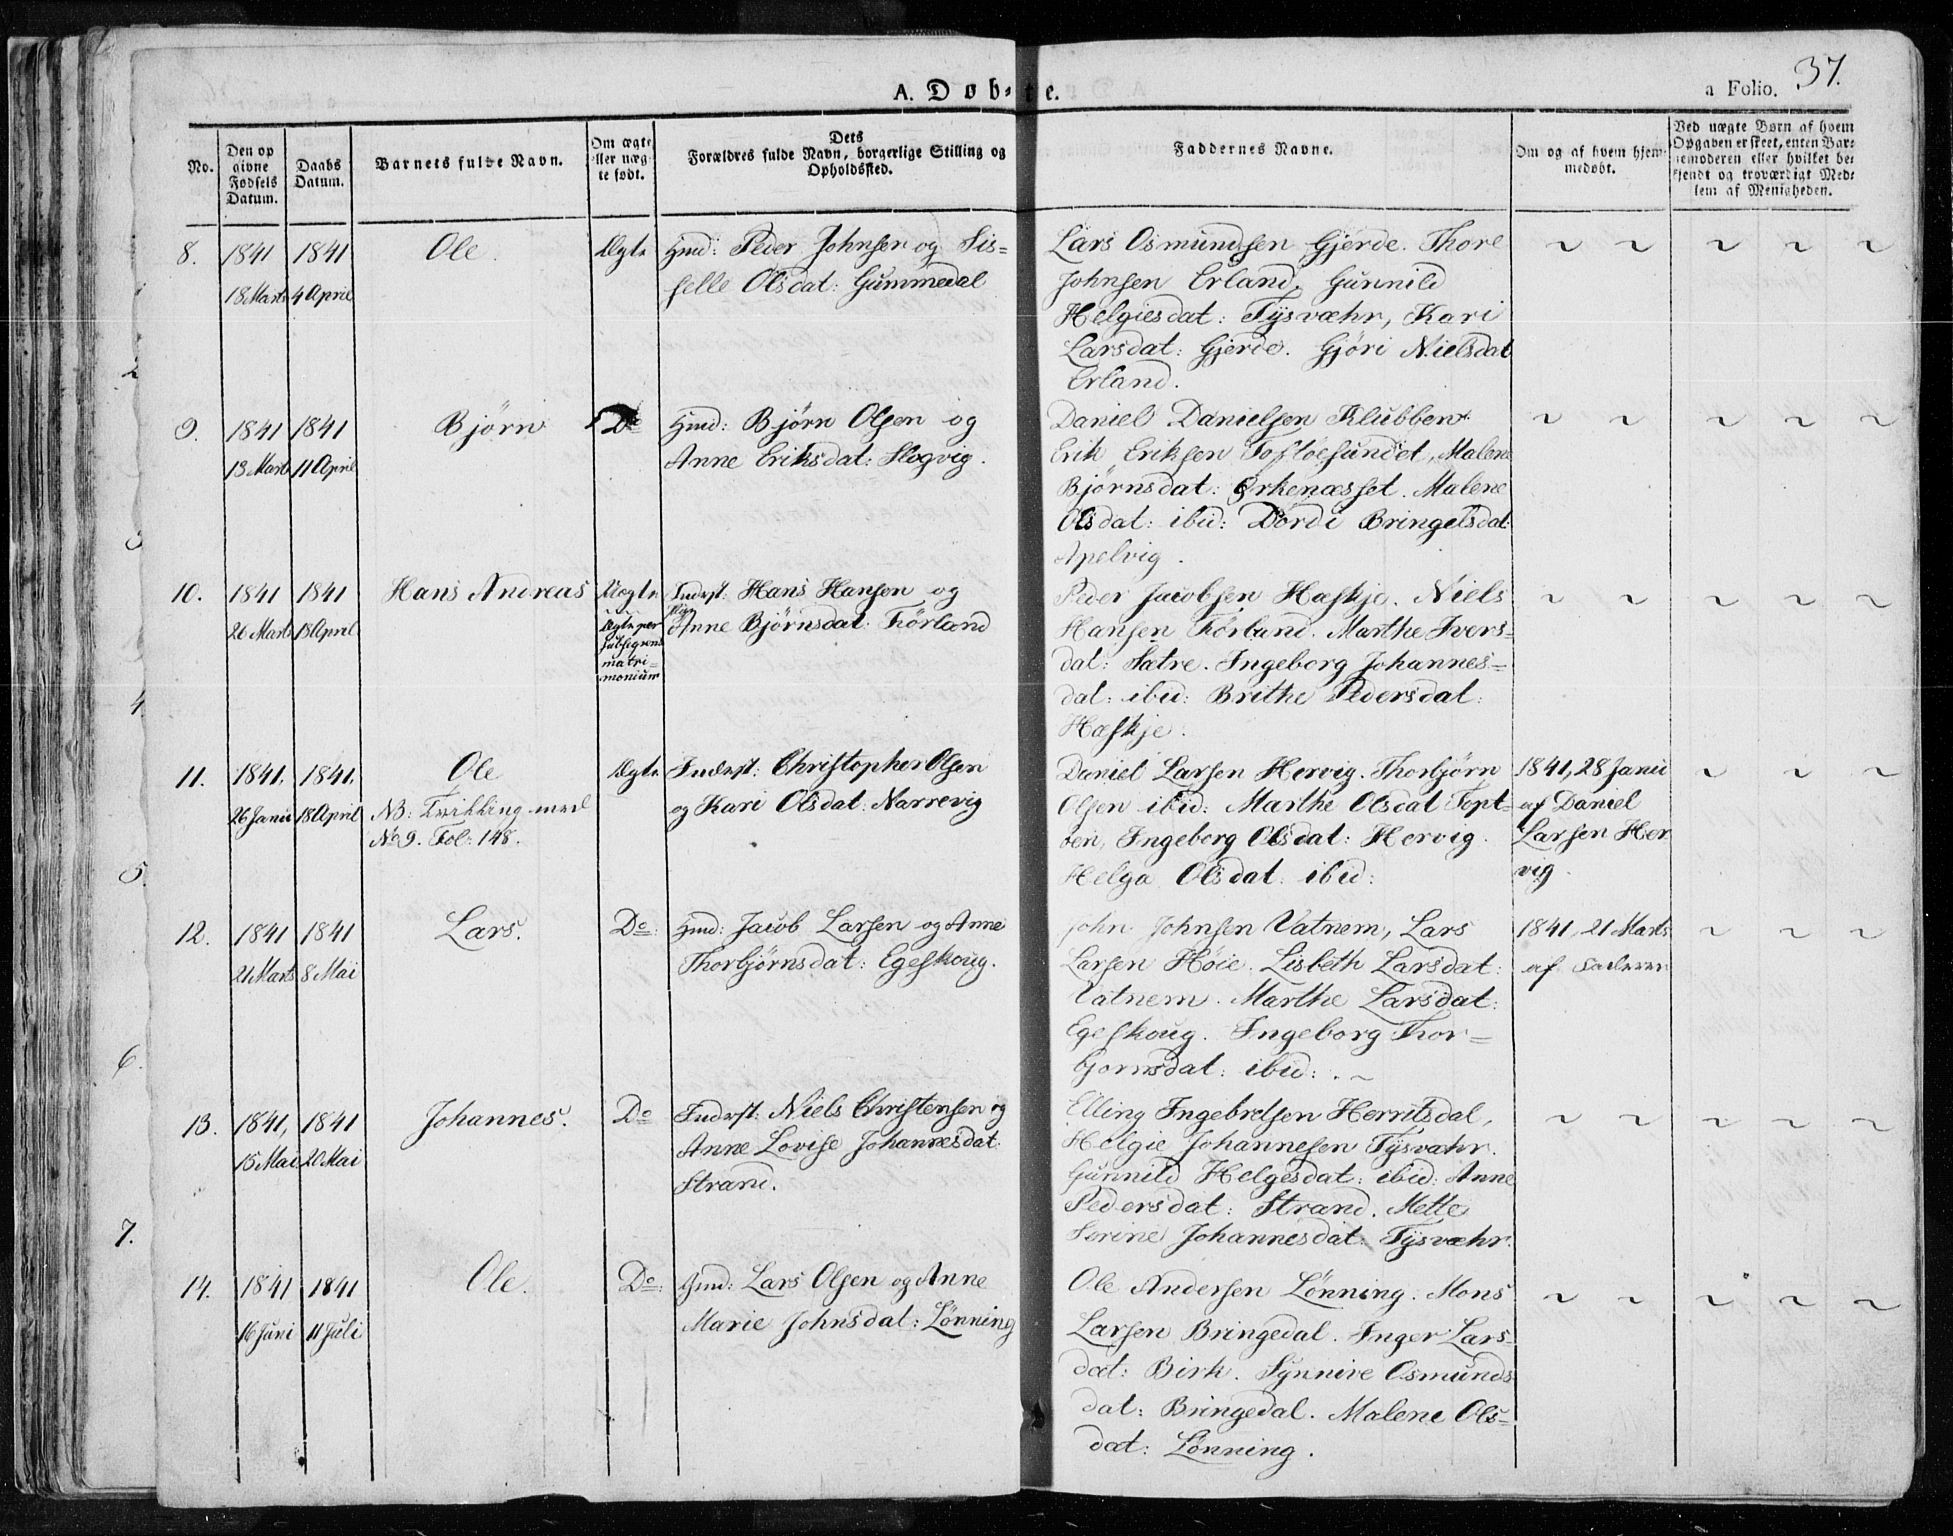 A. Døb-te.
a Folio. 37.
No.
Den op
givne
Fødsels
Datum.
Daabs
Datum.
Barnets fulde Navn.
Om ægte
eller uæg-
te født.
Dets
Forældres fulde Navn, borgerlige Stilling og
Opholdssted.
Faddernes Navne.
Om og af hvem hjem-
medøbt.
Ved uægte Børn af hvem
Opgaven er skeet, enten Bar-
nemoderen eller hvilket be-
kjendt og troværdigt Med-
lem af Menigheden.
8.
1841
18 Marts
1841
4 April
Ole.
Ægte
Gmd: Peder Johnsen og Sis-
selle Olsdat: Gummedal
Lars Osmundsen Gjerde. Thore
Johnsen Erland. Gunnild
Helgiesdat: Tysvæhr, Kari
Larsdat: Gjerde. Gjøri Nielsdat
Erland.
~ ~ ~ ~ ~
9.
1841
13 Marts
1841
11 April
Bjørn
Do
Gmd: Bjørn Olsen og
Anne Eriksdat: Slogvig.
Daniel Danielsen Klubben.
Erik Eriksen Toftøesundet, Malene
Bjørnsdat: Ørkenæsset. Malene
Olsdat: ibid: Dordi Bringelsdat:
Apelvig.
~ ~ ~ ~ ~
10.
1841
26 Marts
1841
18 April
Hans Andreas
Uægte
Ægte per
subseqvens
matri-
monium
Inderst: Hans Hansen og
Pige
Anne Bjørnsdat: Førland
Peder Jacobsen Hæskje. Niels
Hansen Førland. Marthe Ivers-
dat: Sætre. Ingeborg Johannes-
dat: ibid: Brithe Pedersdat:
Hæskje.
~ ~ ~ ~ ~
11.
1841.
26 Janii
1841.
18 April
Ole
NB: Tvilling med
No 9. Fol: 148.
Ægte
Inderst: Christopher Olsen
og Kari Olsdat: Narrevig
Daniel Larsen Hervig. Thorbjørn
Olsen ibid: Marthe Olsdat Tept-
en, Ingeborg Olsdat: Hervig.
Helga Olsdat ibid:
1841, 28 Janii
af Daniel
Larsen Her
vig.
~ ~ ~
12.
1841
21 Marts
1841
8 Mai
Lars.
Do:
Gmd: Jacob Larsen og Anne
Thorbjørnsdat: Egeskoug.
John Johnsen Vatnem, Lars
Larsen Høie. Lisbeth Larsdat:
Vatnem. Marthe Larsdat:
Egeskoug. Ingeborg Thor-
bjornsdat: ibid: . ~
1841, 21 Marts
af Faderen
~ ~ ~
13.
1841,
15 Mai
1841
20 Mai
Johannes.
Do
Inderst: Niels Christensen og
Anne Lovise Johannesdat:
Strand.
Elling Ingebretsen Herritsdal,
Helgie Johannesen Tysvæhr.
Gunnild Helgesdat: ibid: Anne
Pedersdat: Strand. Mette
Serine Johannesdat: Tysvæhr.
~ ~ ~ ~ ~
14.
1841
16 Juni
1841
11 Juli
Ole.
Do:
Gmd: Lars Olsen og Anne
Marie Johnsdal: Lønning
Ole Andersen Lønning. Mons
Larsen Bringedal. Inger Lars-
dat: Birk. Synnive Osmunds
dat: Bringedal. Malene Ols-
dat: Lønning.
~ ~ ~ ~ ~